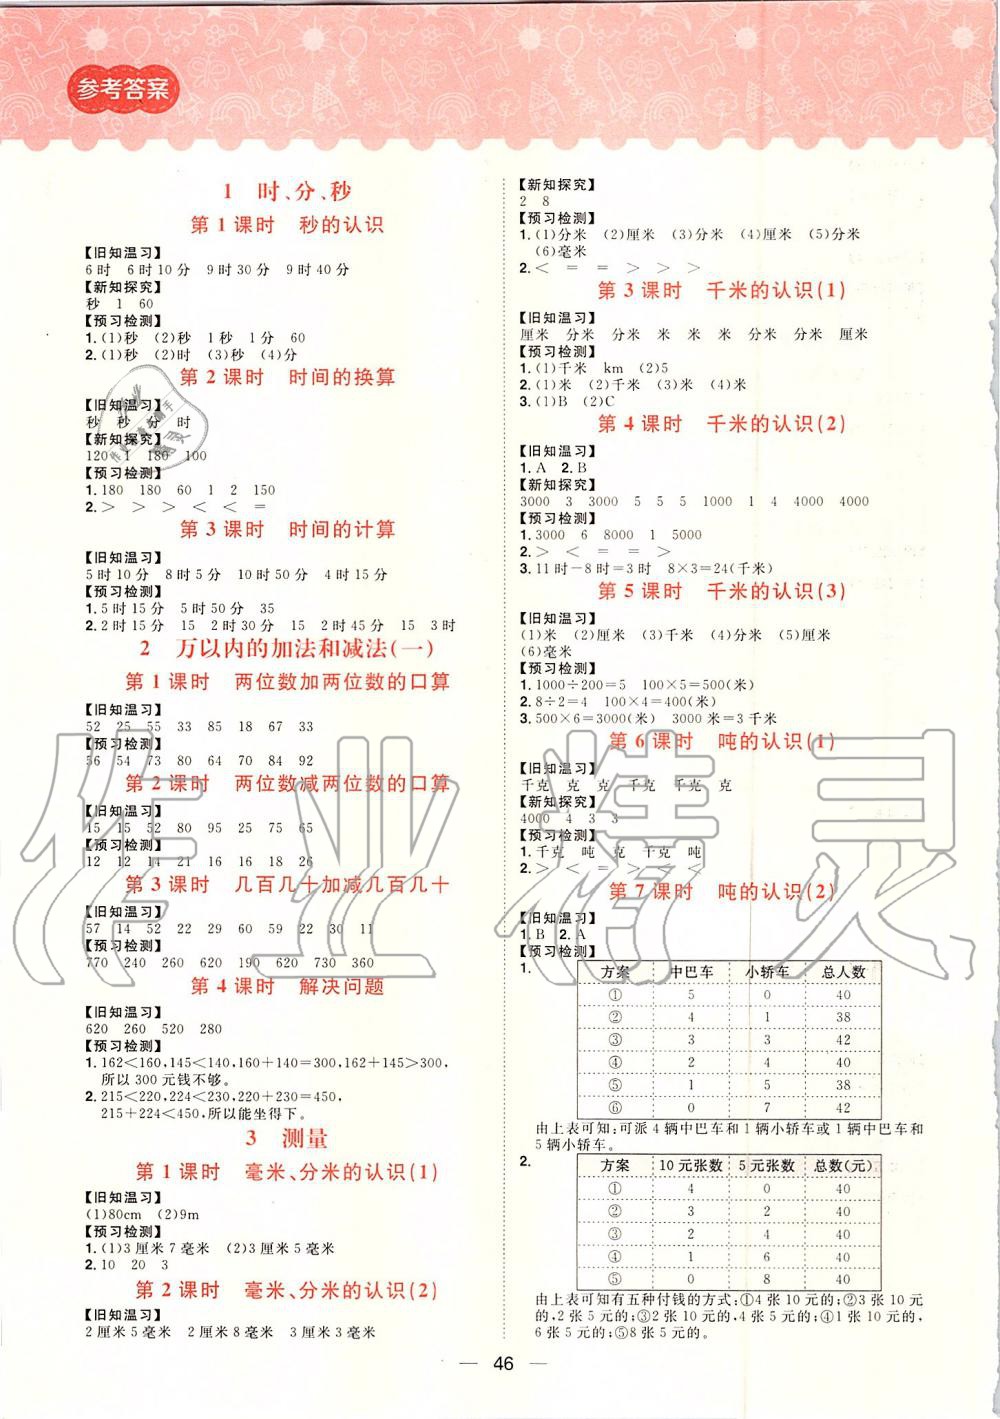 参考答案
1 时、分、秒
第1课时 秒的认识
【旧知温习】
6时 6时10分 9时30分 9时40分
【新知探究】
秒 1 60
【预习检测】
1.(1)秒 (2)秒 1秒 1分 60
2.(1)秒 (2)时 (3)秒 (4)分
第2课时 时间的换算
【旧知温习】
秒 秒 分 时
【新知探究】
120 1 180 100
【预习检测】
1.180 180 60 1 2 150
2.> > > < < =
第3课时 时间的计算
【旧知温习】
5时10分 8时5分 10时50分 4时15分
【预习检测】
1.5时15分 5时50分 35
2.2时15分 15 2时30分 15 2时45分 15 3时
2 万以内的加法和减法(一)
第1课时 两位数加两位数的口算
【旧知温习】
52 25 55 33 85 18 67 33
【预习检测】
56 54 73 80 64 70 84 92
第2课时 两位数减两位数的口算
【旧知温习】
15 15 52 80 95 25 75 65
【预习检测】
12 12 14 21 16 16 18 26
第3课时 几百几十加减几百几十
【旧知温习】
57 14 52 22 29 60 59 22 30 11
【预习检测】
770 240 260 620 190 620 730 360
第4课时 解决问题
【旧知温习】
620 260 520 280
【预习检测】
1.162<160,145<140,160+140=300,162+145>300,
所以300元钱不够。
2.215<220,224<230,220+230=450,
215+224<450,所以能坐得下。
3 测量
第1课时 毫米、分米的认识(1)
【旧知温习】
(1)80cm (2)9m
【预习检测】
1.(1)3厘米7毫米 (2)3厘米5毫米
2.10 20 3
第2课时 毫米、分米的认识(2)
【旧知温习】
2厘米5毫米 2厘米8毫米 3厘米3毫米
【新知探究】
2 8
【预习检测】
1.(1)分米 (2)厘米 (3)分米 (4)厘米 (5)分米
(6)毫米
2.< = = > > >
第3课时 千米的认识(1)
【旧知温习】
厘米 分米 分米 米 米 米 分米 分米 厘米
【预习检测】
1.(1)千米 km (2)5
2.(1)米 (2)千米 (3)米 (4)米
3.(1)B (2)C
第4课时 千米的认识(2)
【旧知温习】
1.A 2.B
【新知探究】
3000 3 3000 5 5 5 1000 1 4 4000 4000
【预习检测】
1.3000 6 8000 1 5000
2.> < = = >
3.11时-8时=3时 8×3=24(千米)
第5课时 千米的认识(3)
【旧知温习】
(1)米 (2)厘米 (3)千米 (4)分米 (5)厘米
(6)毫米
【预习检测】
1.1000÷200=5 100×5=500(米)
2.8÷2=4 100×4=400(米)
3.500×6=3000(米) 3000米=3千米
第6课时 吨的认识(1)
【旧知温习】
千克 克 克 千克 千克 克
【新知探究】
4000 4 3 3
【预习检测】
1.千克 吨 克 千克 吨
2.> < = > < <
第7课时 吨的认识(2)
【旧知温习】
1.B 2.A
【预习检测】
1.
方案 中巴车 小轿车 总人数
① 5 0 40
② 4 1 38
③ 3 3 42
④ 2 4 40
⑤ 1 5 38
⑥ 0 7 42
由上表可知:可派4辆中巴车和1辆小轿车或1辆中巴车和
5辆小轿车。
2.
方案 10元张数 5元张数 总数(元)
① 4 0 40
② 3 2 40
③ 2 4 40
④ 1 6 40
⑤ 0 8 40
由上表可知有五种付钱的方式:①4张10元的;②3张10元
的,2张5元的;③2张10元的,4张5元的;④1张10元的,
6张5元的;⑤8张5元的。
46
作业精灵